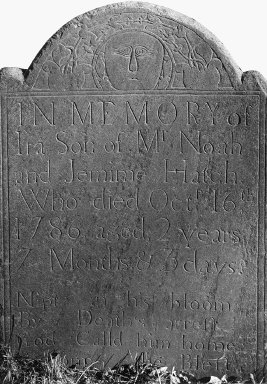 IN MEMORY of
Ira Son of Mr Noah
and Jemime Hatch
Who died Octr 16th
1786 aged 2 years
7 Months & 3 days
in his bloom
by Death
God Calld him home